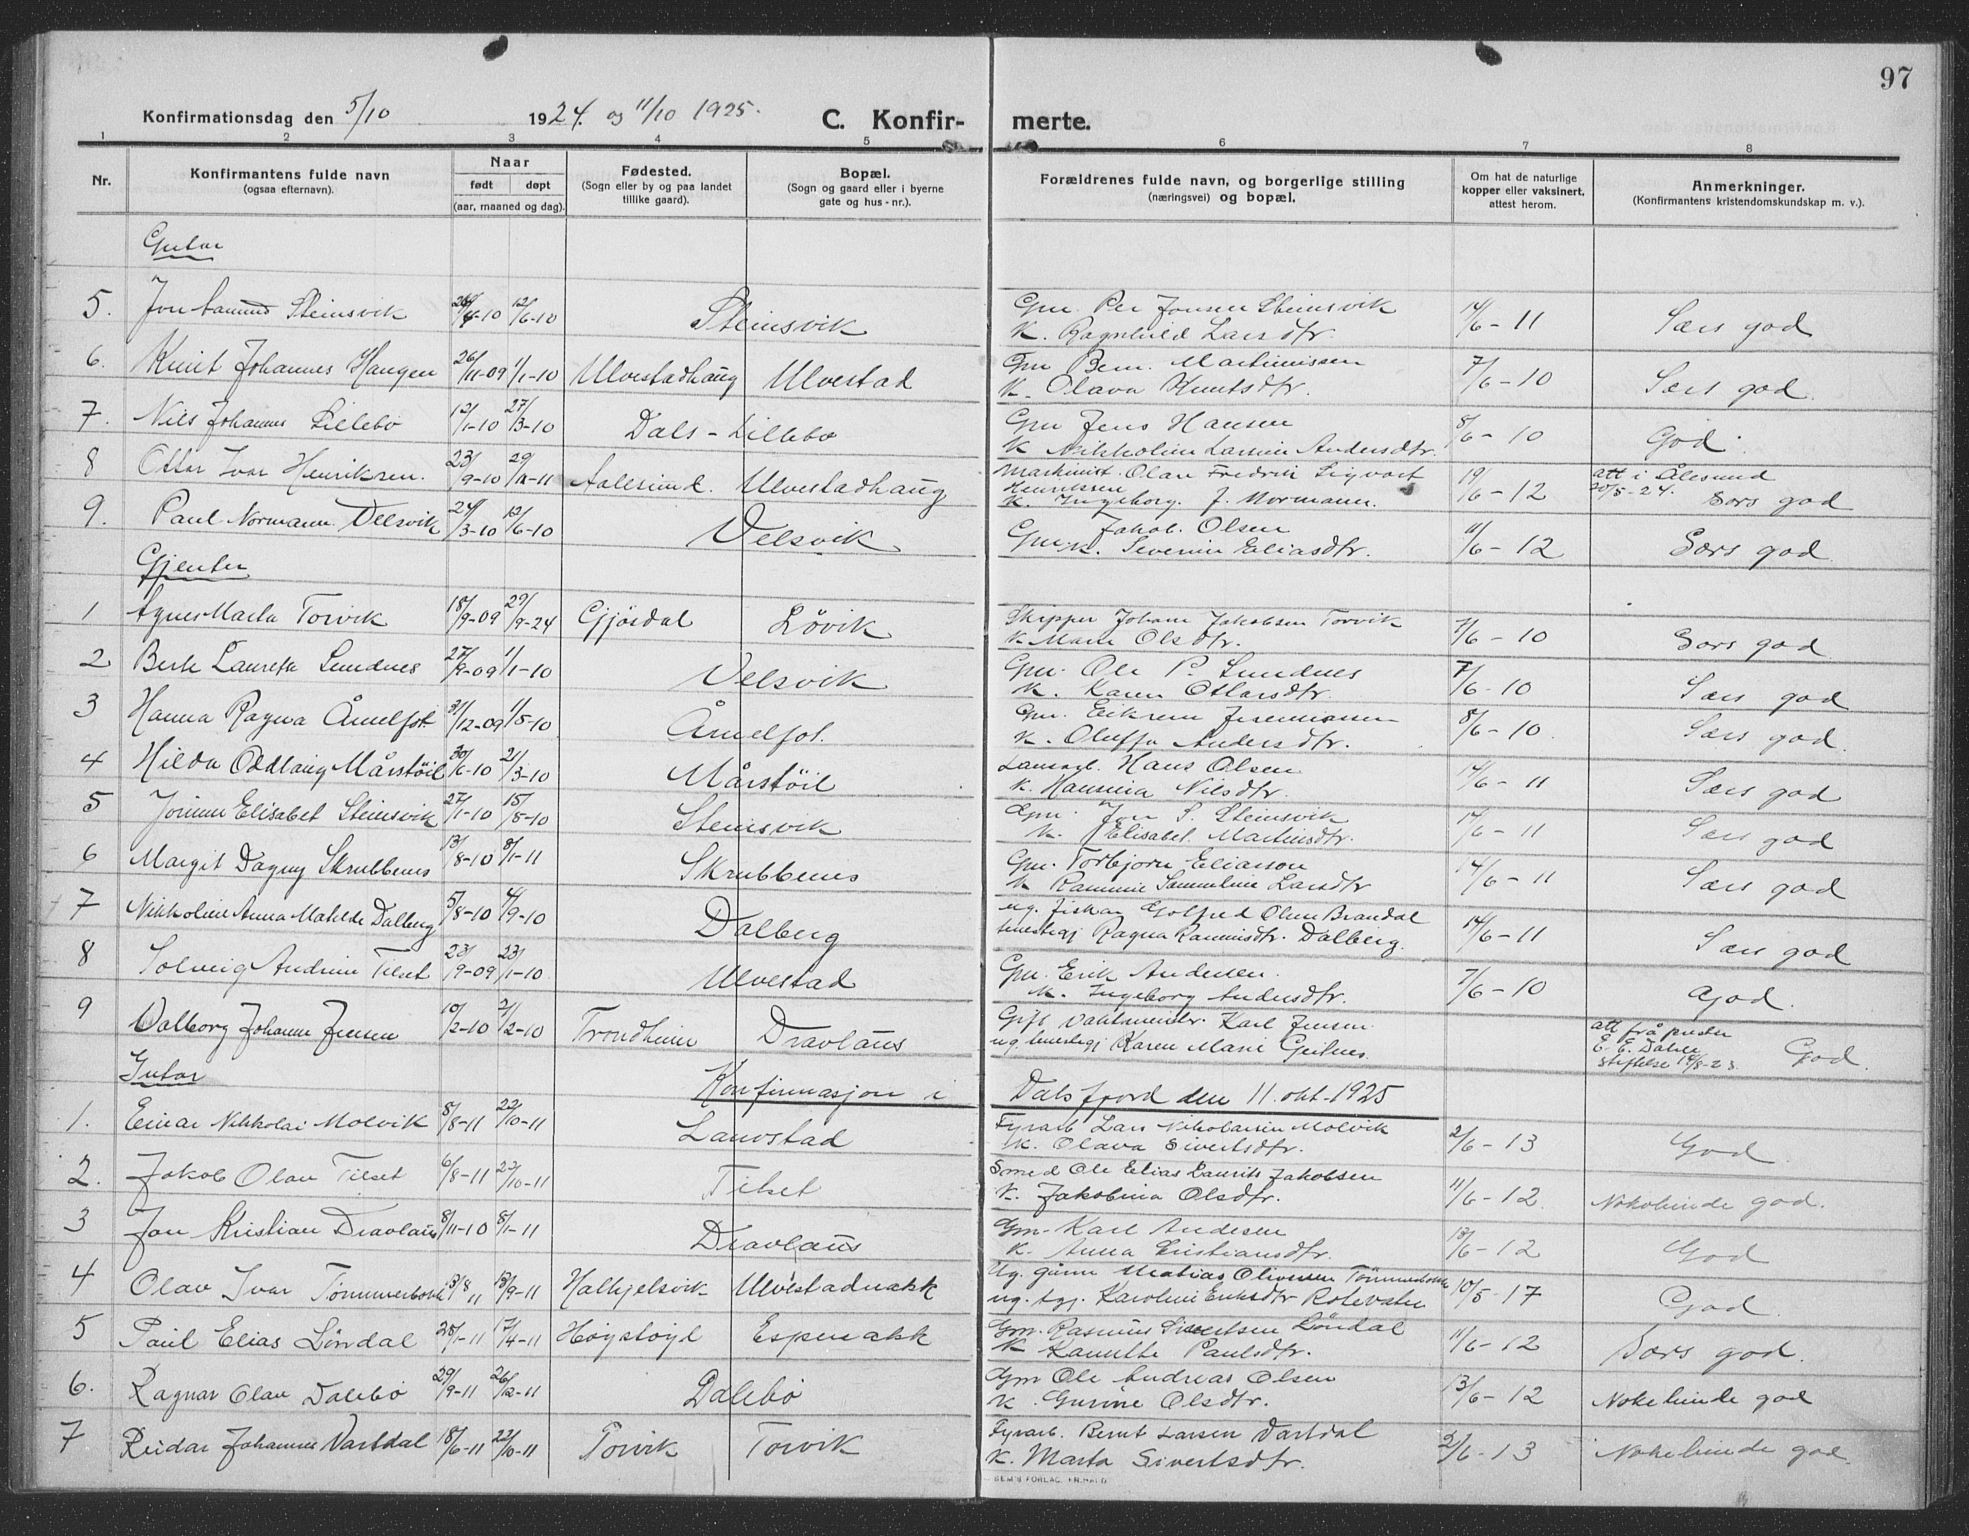 97
Konfirmationsdag den 5/10 1924. og 11/10 1925. C. Konfir- merte.
1 2 3 4 5 6 7 8
Nr. Konfirmantens fulde navn (ogsaa efternavn). Naar født døpt (aar, maaned og dag). Fødested. (Sogn eller by og paa landet tillike gaard). Bopæl. (Sogn og gaard eller i byerne gate og hus-nr.). Forældrenes fulde navn, og borgerlige stilling (næringsvei) og bopæl. Om hat de naturlige kopper eller vaksinert, attest herom. Anmerkninger. (Konfirmantens kristendomskundskap m. v.).
Gutar
5. Jon Samund Steinsvik 12/6-10 Steinsvik Gm Per Jonsen Steinsvik 14/6-11 Særs god
K. Ragnhild Larsdtr.
6. Knut Johannes Haugen 26/11-09 1/1-10 Ulvestadhaug Ulvestad Gm Bern. Martinussen 7/6-10 Særs god.
K. Olava Knutsdtr.
7. Nils Johannes Lillebø 12/1-10 27/3-10 Dals-Lillebø Gm Jens Hansen 8/6-10 God.
K Nikkoline Larsine Andersdtr.
8 Ottar Ivar Henriksen. 23/9-10 Aalesund. Ulvestadhaug Maskinist Olav Fredrik Sigvart Henriksen 19/6-12 att i Ålesund 20/5-24. Særs god
K. Ingeborg f. Normann.
9. Paul Normann Velsvik 24/3-10 12/6-10 Velsvik Gm Jakob Olsen 11/6-12 Særs god
K. Severine Eliasdtr.
Gjentur
1 Agnes Marta Torvik 18/9-09 29/9-24 Gjørdal Løvik Skipper Johan Jakobsen Torvik 7/6-10 Særs god
K. Marie Olsdtr.
2 Berte Laureta Sundnes 27/9-09 1/1-10 Velsvik Gm. Ole P. Sundnes 7/6-10 Særs god
K. Karen Ottarsdtr.
3 Hanna Ragna Åmelfot. 31/12-09 1/5-10 Åmelfot. Gm. 8/6-10 Særs god.
K. Oluffa Andersdtr.
4 Hilda Oddlaug Mårstöil 30/6-10 21/3-10 Mårstöil Hans Olsen 14/6-11 Særs god
K. Hansina Nilsdtr.
5 Elisabet Steinsvik 27/1-10 15/5-10 Steinsvik Gm. Jon S. Steinsvik 14/6-11 Særs god
K. Elisabet Martinsdtr.
6 Margit Dagny Skrubbenes 13/8-10 8/1-11 Skrubbenes Gm. Torbjørn Eliassen 14/6-11 Særs god
K Larsdtr
7 Nikkoline Anna Matilde Dalberg 5/8-10 4/9-10 Dalberg ug. fiskar Olsen Brandal 14/6-11 Særs god
Ragna Rasmusdtr. Dalberg.
8 Solveig Andrine Tilset 23/9-09 23/1-10 Ulvestad Gm. Erik Andersen. 7/6-10 God.
K. Ingeborg Andersdtr.
9 Valborg Johanne Jensen 10/2-10 Trondheim Dravlaus Gift Vaktmester Karl Jensen att frå presten E. E. Dahls stiftelse God.
ug. tenestegj Karen Marie Geitnes.
Gutar Konfirmasjon i Dalsfjord den 11. okt. 1925
1. Einar Nikkolai Molvik 5/8-11 22/10-11 Lauvstad Fyrarb Lars Nikolaisen Molvik 2/6-13 God
K. Olava Sivertsdtr.
2. Jakob Olav Tilset 6/8-11 22/10-11 Tilset Smed Ole Elias Laurits Jakobsen 11/6-12 Nokolunde god.
K. Jakobina Olsdtr.
3 Jon Kristian Dravlaus 8/11-10 8/1-11 Dravlaus Gm. Karl Andesen 13/6-12 God
K. Anna Kristiansdtr.
4 Olav Ivar 13/8 11 Halkjelsvik Ulvestadnakk Ug. Matias Oliversen 10/5-17 God
ug. tgj. Karoline Eriksdtr Rotevatn
5 Paul Elias Løndal 25/1-11 17/4-11 Høgstøyl Espenakk Gm. Rasmus Sivertsen Løndal 11/6-12 Særs god.
K Kanutte Paulsdtr.
6. Ragnar Olav Dalebø 29/9-11 26/12-11 Dalebø Gm Ole Andreas Olsen 13/6-12 Nokolunde god
K. Gurine Olsdtr.
7 Reidar Johannes Vartdal 18/6-11 22/10-11 Torvik Torvik Fyrarb. Bernt Larsen Vartdal 2/6-13 Nokolunde god
K. Marta Sivertsdtr.
SEM'S FORLAG, FR.HALD